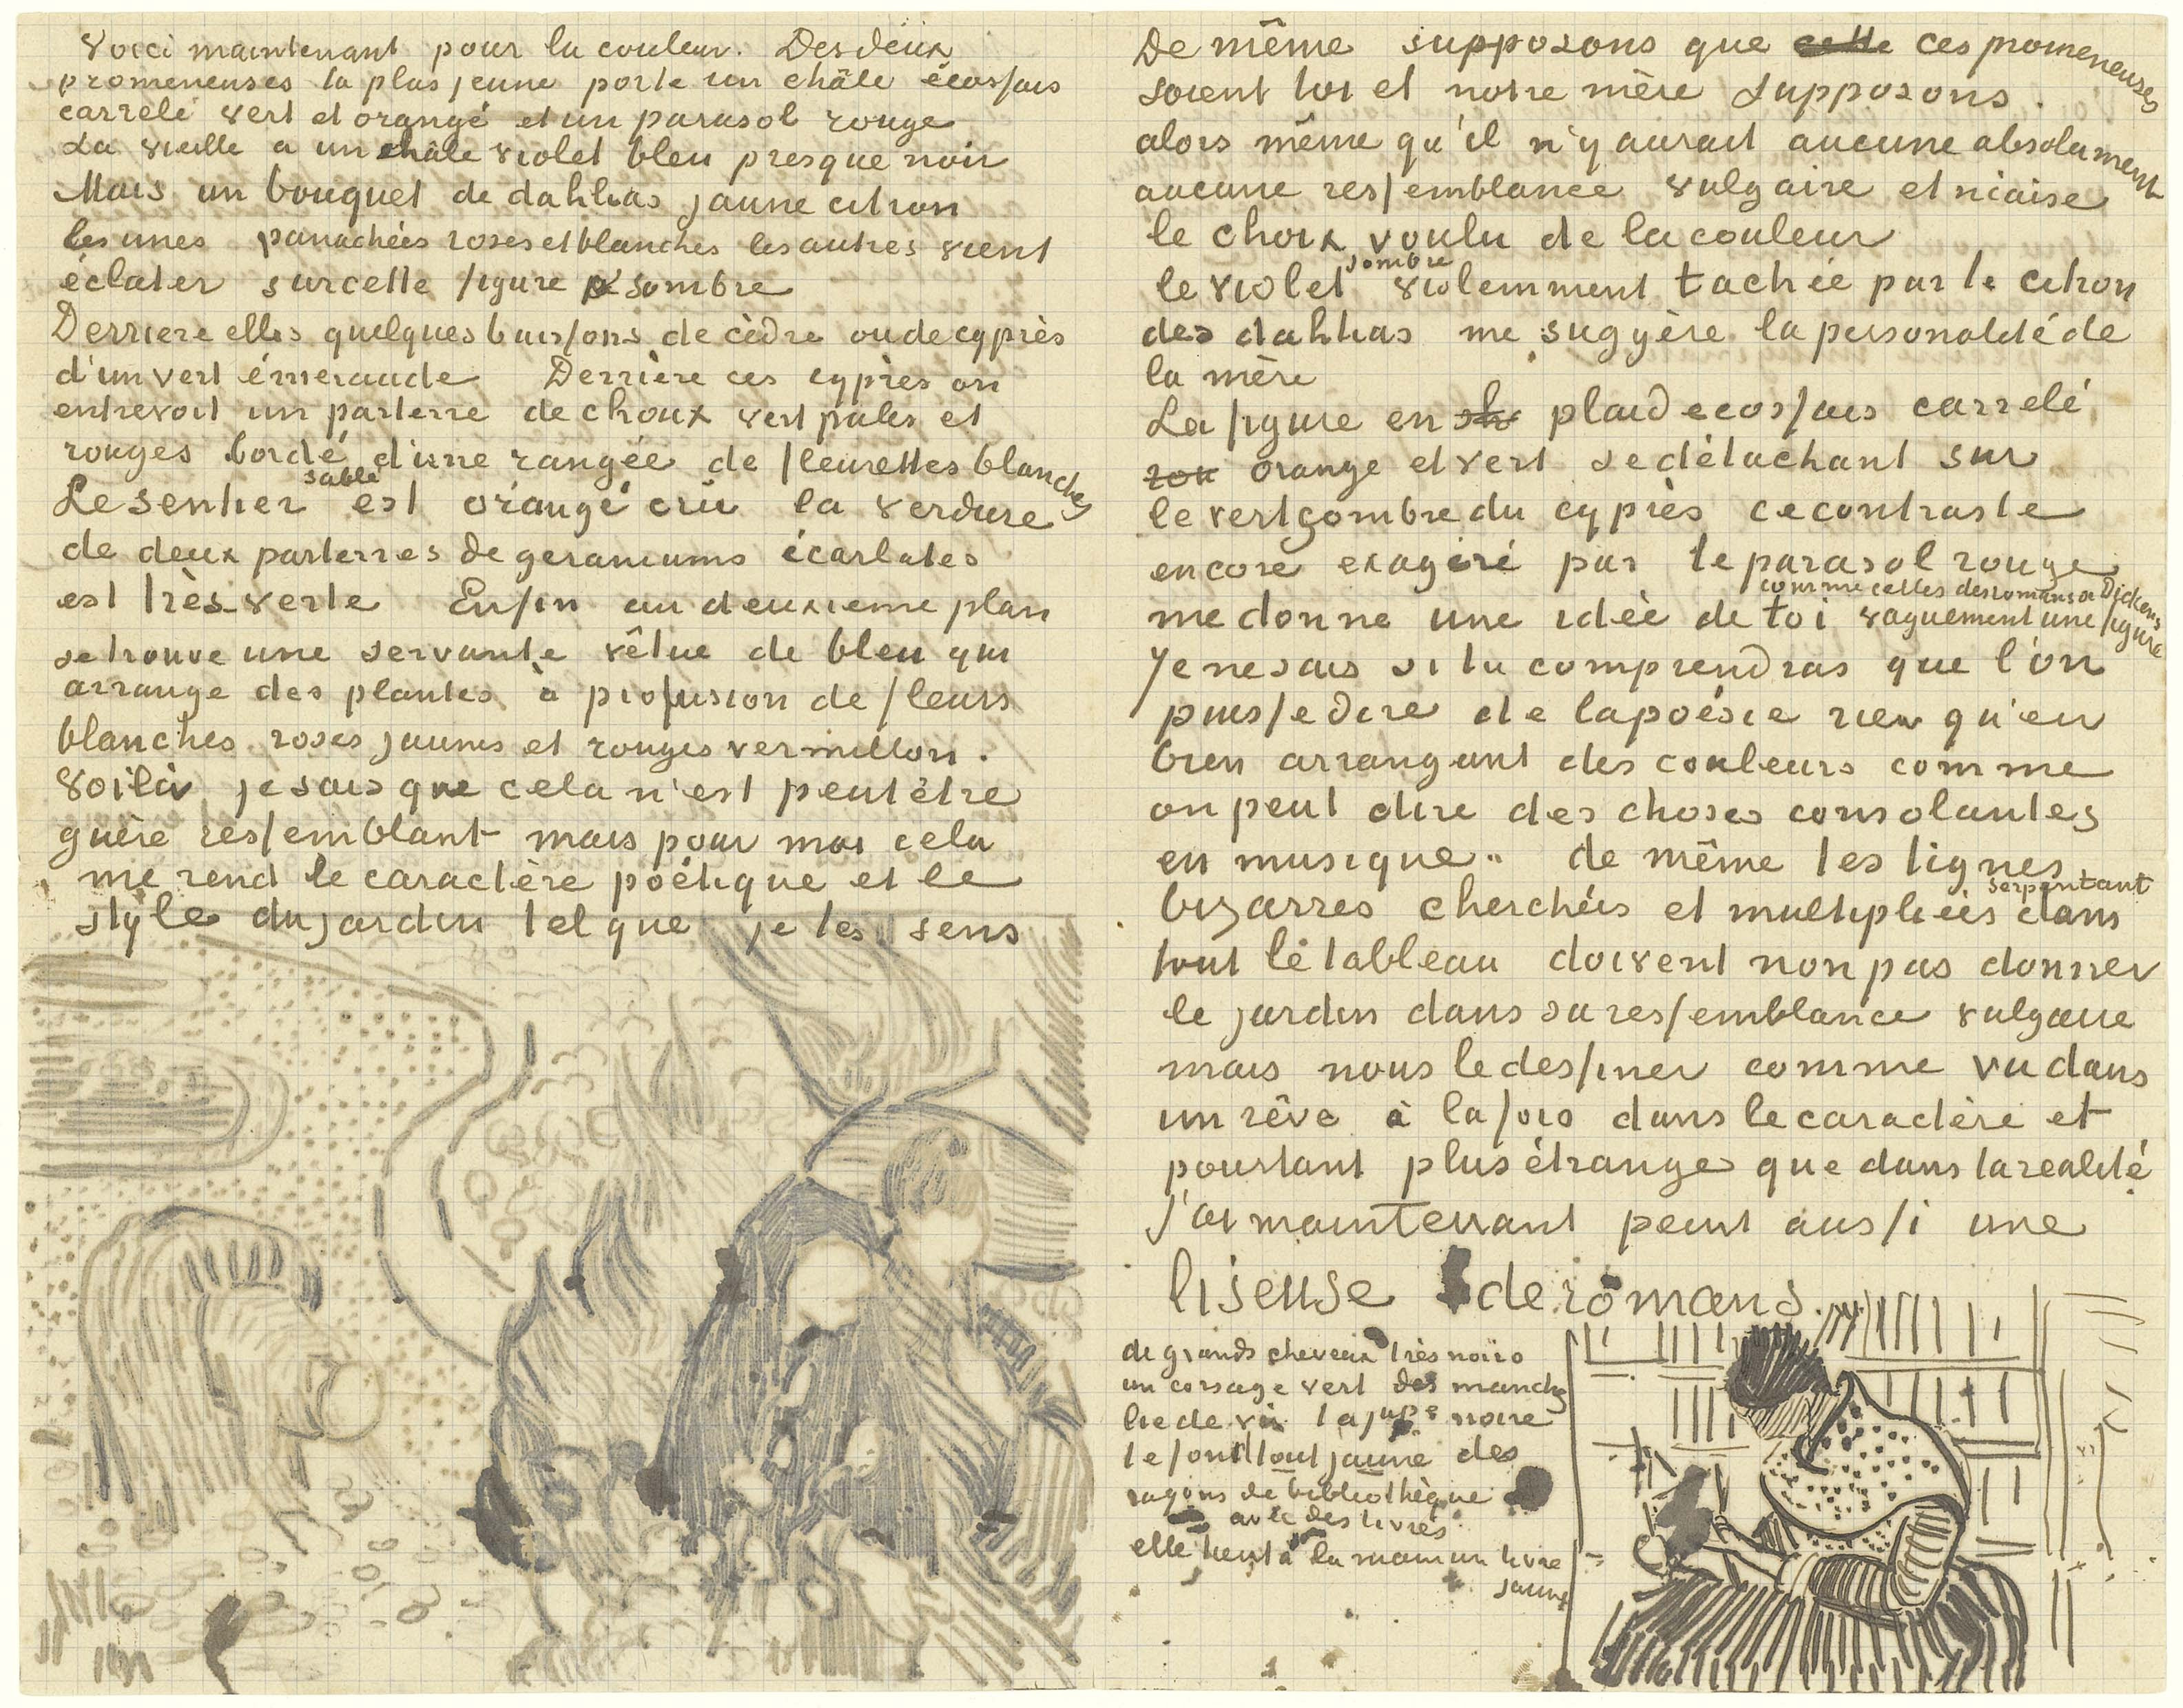 Voici maintenant pour la couleur. Des deux
promeneuses la plus jeune porte un châle écossais
carrelé vert et orangé et un parasol rouge
La vieille a un châle violet bleu presque noir
Mais un bouquet de dahlias jaune citron
les unes panachées roses et blanches les autres vient
éclater sur cette figure sombre
Derriere elles quelques buissons de cèdre ou de cyprès
d'un vert émeraude Derrière ces cyprès on
entrevoit un parterre de choux vert pâles et
rouges bordé d'une rangée de fleurettes blanches
Le sentier sablé est orangé cru la verdure
de deux parterres de geraniums écarlates
est très verte Enfin au deuxieme plan
se trouve une servante vêtue de bleu qui
arrange des plantes à profusion de fleurs
blanches roses jaunes et rouges vermillon.
Voilà je sais que cela n'est peut être
guère ressemblant mais pour moi cela
me rend le caractère poétique et le
style du jardin tel que je les sens
De même supposons que cette ces promeneuses
soient toi et notre mère supposons.
alors même qu'il n'y aurait aucune absolument
aucune ressemblance vulgaire et niaise
le choix voulu de la couleur
le violet sombre violemment tachée par le citron
des dahlias me suggère la personalité de
la mère
La figure en plaid ecossais carrelé
orange et vert se détachant sur
le vert sombre du cyprès ce contraste
encore exagéré par le parasol rouge
me donne une idée de toi vaguement une figure
comme celles des romans a Dickens
Je ne sais si tu comprendras que l'on
puisse dire de la poésie rien qu'en
bien arrangeant des couleurs comme
on peut dire des choses consolantes
en musique.. de même les lignes
bizarres cherchées et multipliées serpentant dans
tout le tableau doivent non pas donner
le jardin dans sa ressemblance vulgaire
mais nous le dessiner comme vu dans
un rêve à la fois dans le caractère et
pourtant plus étrange que dans la realité
J'ai maintenant peint aussi une
liseuse de romans.
de grands cheveux très noirs
un corsage vert des manches
lie de vin la jupe noire
le fond tout jaune des
rayons de bibliothèque
avec des livres
elle tient à la main un livre
jaune